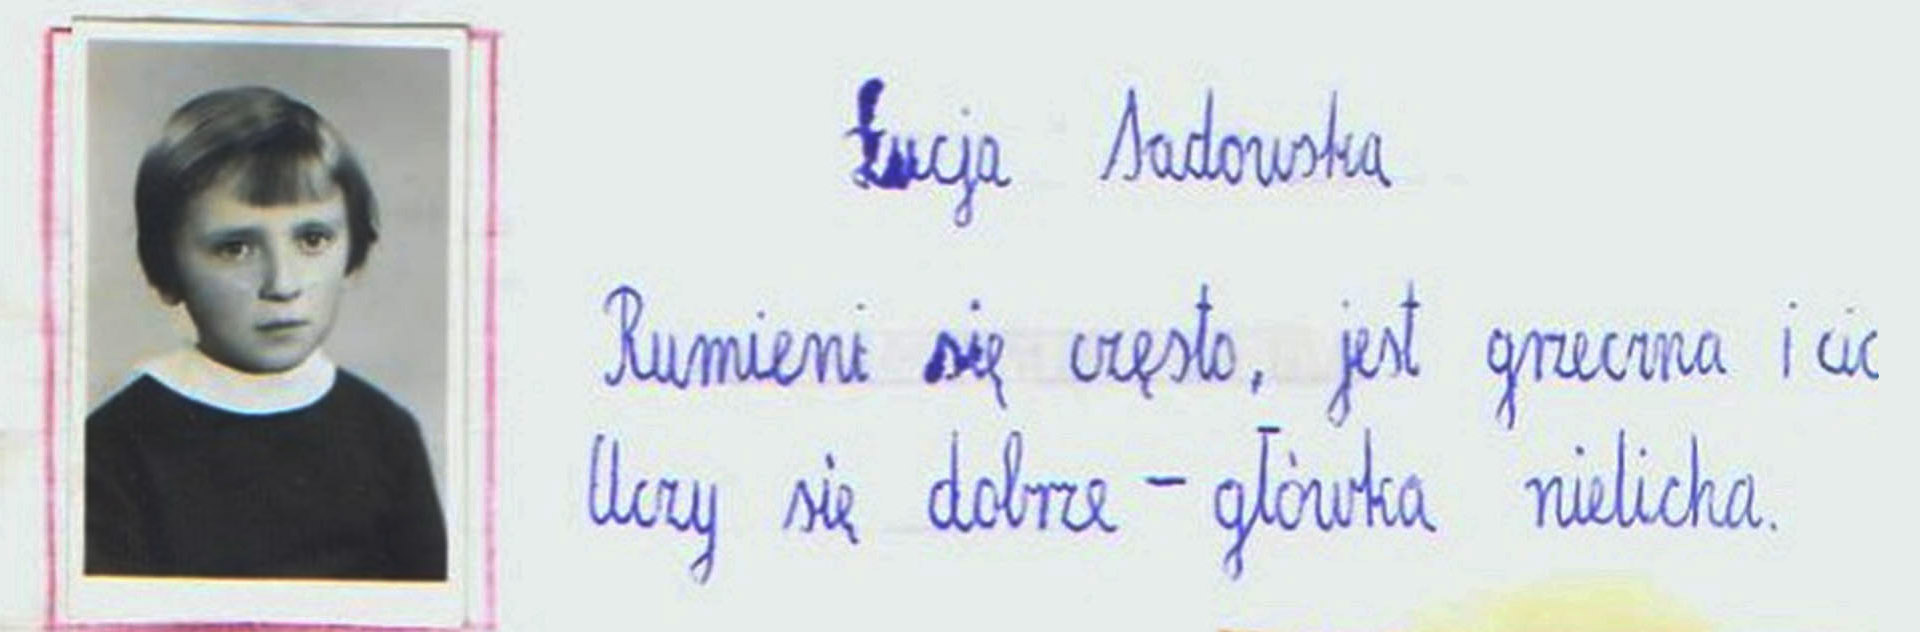 Łucja Sadowska
Rumieni się często, jest grzeczna i cic
Uczy się dobrze – główka nielicha.